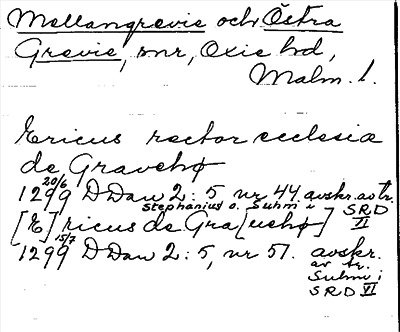 Mellangrevie och Östra
Grevie, snr, Oxie hd,
Malm. l.
Ericus rector ecclesiæ
de Gravehø
1299 20/6 DDan 2:5 nr 44 avskr. av tr.
Stephanius o. Suhm i SRD VI
[E]ricus de Gra[uehø]
1299 15/7 DDan 2:5, nr 51. avskr.
av tr.
Suhm i
SRD VI